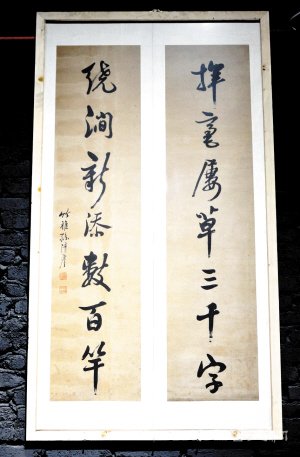 揮毫屢草三千字
繞澗新添數百竿